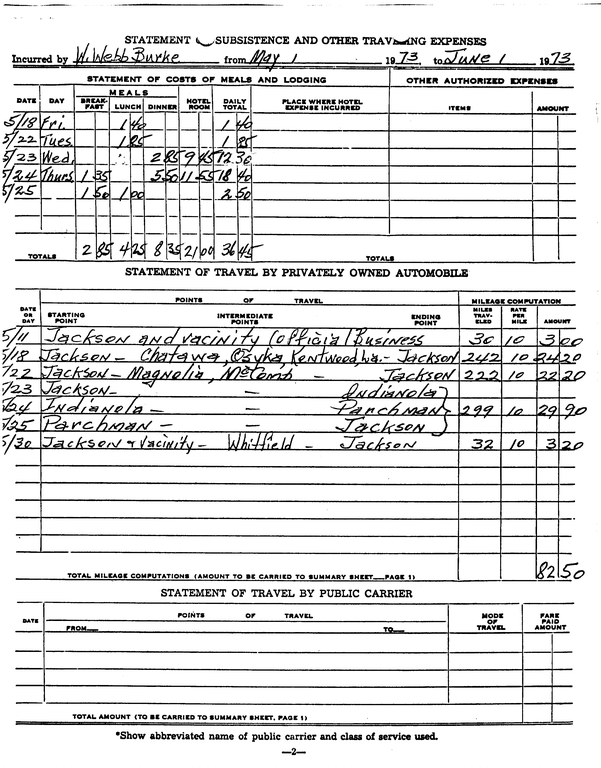 STATEMENT SUBSISTENCE AND OTHER TRAVELING EXPENSES
Incurred by W. Webb Burke from May 1 1973, to June 1 1973
STATEMENT OF COSTS OF MEALS AND LODGING OTHER AUTHORIZED EXPENSES
MEALS
DATE DAY BREAK-FAST LUNCH DINNER HOTEL ROOM DAILY TOTAL PLACE WHERE HOTEL EXPENSE INCURRED ITEMS AMOUNT
5/18 Fri. 1 40 1 40
5/22 Tues. 1 85 1 85
5/23 Wed. 2 85 9 45 12 30
5/24 Thurs 1 35 5 50 11 55 18 40
5/25 1 50 1 00 2 50
TOTALS 2 85 4 25 8 35 21 00 36 45 TOTALS
STATEMENT OF TRAVEL BY PRIVATELY OWNED AUTOMOBILE
DATE OR DAY POINTS OF TRAVEL MILEAGE COMPUTATION
STARTING POINT INTERMEDIATE POINTS ENDING POINT MILES TRAV-ELED RATE PER MILE AMOUNT
5/11 Jackson and vacinity (official Business 30 10 3 00
5/18 Jackson - Chatawa, Osyka, Kentwood, La. - Jackson 242 10 24 20
/22 Jackson - Magnolia, McComb - Jackson 222 10 22 20
/23 Jackson - - Indianola
/24 Indianola - - Parchman 299 10 29 90
/25 Parchman - - Jackson
5/30 Jackson & vacinity - Whitfield - Jackson 32 10 3 20
TOTAL MILEAGE COMPUTATIONS (AMOUNT TO BE CARRIED TO SUMMARY SHEET, PAGE 1) 82 50
STATEMENT OF TRAVEL BY PUBLIC CARRIER
DATE POINTS OF TRAVEL MODE OF TRAVEL FARE PAID AMOUNT
FROM TO
TOTAL AMOUNT (TO BE CARRIED TO SUMMARY SHEET, PAGE 1)
*Show abbreviated name of public carrier and class of service used.
—2—